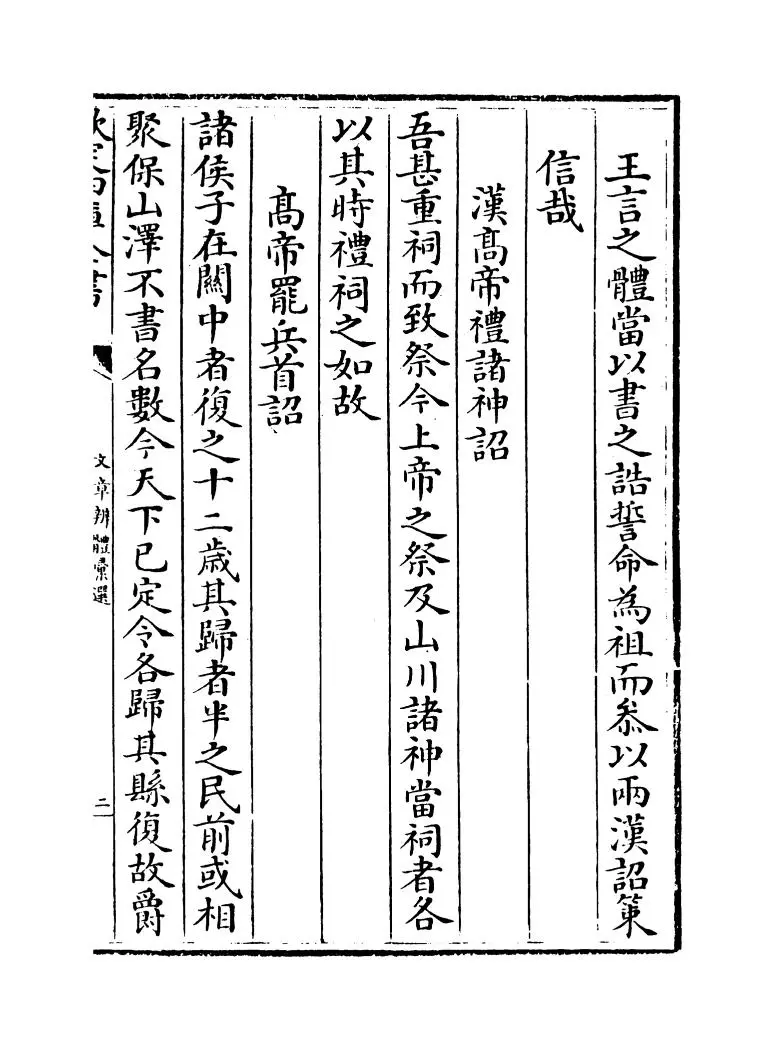 王言之體當以書之誥誓命為祖而叅以兩漢詔策
信哉
漢髙帝禮諸神詔
吾甚重祠而致祭今上帝之祭及山川諸神當祠者各
以其時禮祠之如故
髙帝罷兵首詔
諸侯子在關中者復之十二歲其歸者半之民前或相
聚保山澤不書名數今天下已定令各歸其縣復故爵
文章辨體彚選
二